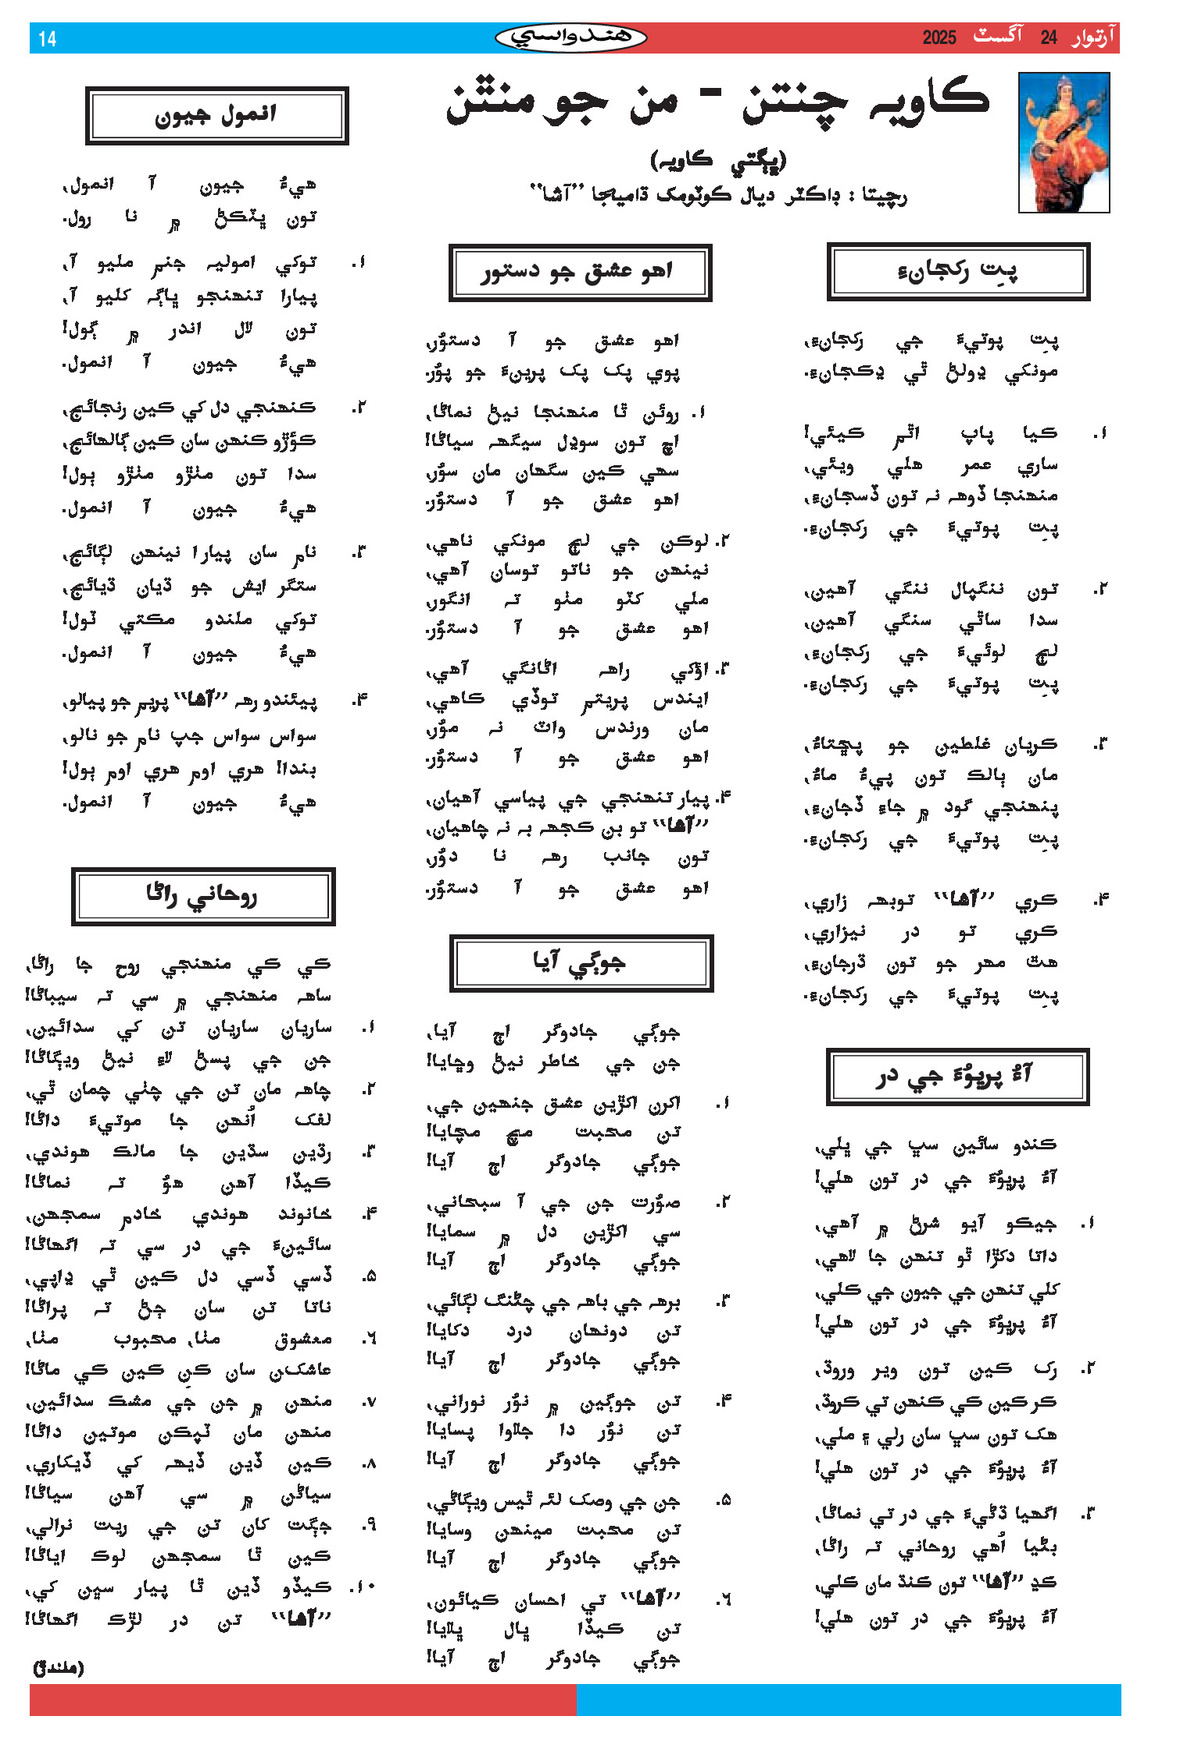 آرتوار 24 آگسٽ 2025
هندواسي
14
ڪاويہ چنتن - من جو منٿن
(ڀڳتي ڪاويہ)
رچيتا : ڊاڪٽر ديال ڪوٽومڪ ڌاميجا ”آشا“
پتِ رکجانءِ
پتِ پوتيءَ جي رکجانءِ،
مونکي ڍولڻ ٿي ڍڪجانءِ.
۱. ڪيا پاپ اٿم ڪيئي!
ساري عمر هلي ويئي،
منهنجا ڏوهہ نہ تون ڏسجانءِ،
پتِ پوتيءَ جي رکجانءِ.
۲. تون ننگپال ننگي آهين،
سدا ساٿي سنگي آهين،
لڄ لوئيءَ جي رکجانءِ،
پتِ پوتيءَ جي رکجانءِ.
۳. ڪريان غلطين جو پڇتاءُ،
مان ٻالڪ تون پيءُ ماءُ،
پنهنجي گود ۾ جاءِ ڏجانءِ،
پتِ پوتيءَ جي رکجانءِ.
۴. ڪري ”آشا“ توبهہ زاري،
ڪري تو در نيزاري،
هٿ مهر جو تون ڌرجانءِ،
پتِ پوتيءَ جي رکجانءِ.
آءُ پرڀوءَ جي در
ڪندو سائين سڀ جي ڀلي،
آءُ پرڀوءَ جي در تون هلي!
۱. جيڪو آيو شرڻ ۾ آهي،
داتا دکڙا ٿو تنهن جا لاهي،
کلي تنهن جي جيون جي ڪلي،
آءُ پرڀوءَ جي در تون هلي!
۲. رک ڪين تون وير وروڌ،
ڪر ڪين ڪي ڪنهن تي ڪروڌ،
هڪ تون سڀ سان رلي ۽ ملي،
آءُ پرڀوءَ جي در تون هلي!
۳. اگهيا ڌڻيءَ جي در تي نماڻا،
بڻيا اُهي روحاني تہ راڻا،
ڪڍ ”آشا“ تون ڪنڌ مان ڪلي،
آءُ پرڀوءَ جي در تون هلي!
اهو عشق جو دستور
اهو عشق جو آ دستوُر،
پوي پڪ پڪ پرينءَ جو پوُر.
۱. روئن ٿا منهنجا نيڻ نماڻا،
اچ تون سوڍل سيگهہ سياڻا!
سهي ڪين سگهان مان سوُر،
اهو عشق جو آ دستوُر.
۲. لوڪن جي لڄ مونکي ناهي،
نينهن جو ناتو توسان آهي،
ملي کٽو مٺو تہ انگور،
اهو عشق جو آ دستوُر.
۳. اؤکي راهہ اڻانگي آهي،
ايندس پريتم توڏي ڪاهي،
مان ورندس واٽ نہ موُر،
اهو عشق جو آ دستوُر.
۴. پيار تنهنجي جي پياسي آهيان،
”آشا“ تو بن ڪجهہ بہ نہ چاهيان،
تون جانب رهہ نا دوُر،
اهو عشق جو آ دستوُر.
جوڳي آيا
جوڳي جادوگر اڄ آيا،
جن جي خاطر نيڻ وڇايا!
۱. اکرن اکڙين عشق جنهين جي،
تن محبت مچ مچايا!
جوڳي جادوگر اڄ آيا!
۲. صوُرت جن جي آ سبحاني،
سي اکڙين دل ۾ سمايا!
جوڳي جادوگر اڄ آيا!
۳. برهہ جي باهہ جي چڻنگ لڳائي،
تن دونهان درد دکايا!
جوڳي جادوگر اڄ آيا!
۴. تن جوڳين ۾ نوُر نوراني،
تن نوُر دا جلاوا پسايا!
جوڳي جادوگر اڄ آيا!
۵. جن جي وصڪ لئہ ٿيس ويڳاڻي،
تن محبت مينهن وسايا!
جوڳي جادوگر اڄ آيا!
۶. ”آشا“ تي احسان ڪيائون،
تن ڪيڏا ڀال ڀلايا!
جوڳي جادوگر اڄ آيا!
انمول جيون
هيءُ جيون آ انمول،
تون ڀٽڪڻ ۾ نا رول.
۱. توکي امولہہ جنم مليو آ،
پيارا تنهنجو ڀاڳہ کليو آ،
تون لال اندر ۾ ڳول!
هيءُ جيون آ انمول.
۲. ڪنهنجي دل کي ڪين رنجائج،
ڪؤڙو ڪنهن سان ڪين ڳالهائج،
سدا تون مٺڙو مٺڙو ٻول!
هيءُ جيون آ انمول.
۳. نام سان پيارا نينهن لڳائج،
ستگر ايش جو ڌيان ڌيائج،
توکي ملندو مڪتي ٽول!
هيءُ جيون آ انمول.
۴. پيئندو رهہ ”آشا“ پريم جو پيالو،
سواس سواس جپ نام جو نالو،
بندا! هري اوم هري اوم ٻول!
هيءُ جيون آ انمول.
روحاني راڻا
ڪي ڪي منهنجي روح جا راڻا،
ساهہ منهنجي ۾ سي تہ سيباڻا!
۱. ساريان ساريان تن کي سدائين،
جن جي پسڻ لاءِ نيڻ ويڳاڻا!
۲. چاهہ مان تن جي چٺي چمان ٿي،
لفڪ اُنهن جا موتيءَ داڻا!
۳. رڌين سڌين جا مالڪ هوندي،
ڪيڏا آهن هوُ تہ نماڻا!
۴. خانوند هوندي خادم سمجهن،
سائينءَ جي در سي تہ اگهاڻا!
۵. ڏسي ڏسي دل ڪين ٿي ڍاپي،
ناتا تن سان ڄڻ تہ پراڻا!
۶. معشوق مٺا، محبوب مٺا،
عاشڪن سان ڪنِ ڪين ڪي ماڻا!
۷. منهن ۾ جن جي مشڪ سدائين،
منهن مان ٽپڪن موتين داڻا!
۸. ڪين ڏين ڏيهہ کي ڏيکاري،
سياڻن ۾ سي آهن سياڻا!
۹. جڳت کان تن جي ريت نرالي،
ڪين ٿا سمجهن لوڪ اياڻا!
۱۰. ڪيڏو ڏين ٿا پيار سڀن کي،
”آشا“ تن در لڙڪ اگهاڻا!
(هلندڙ)